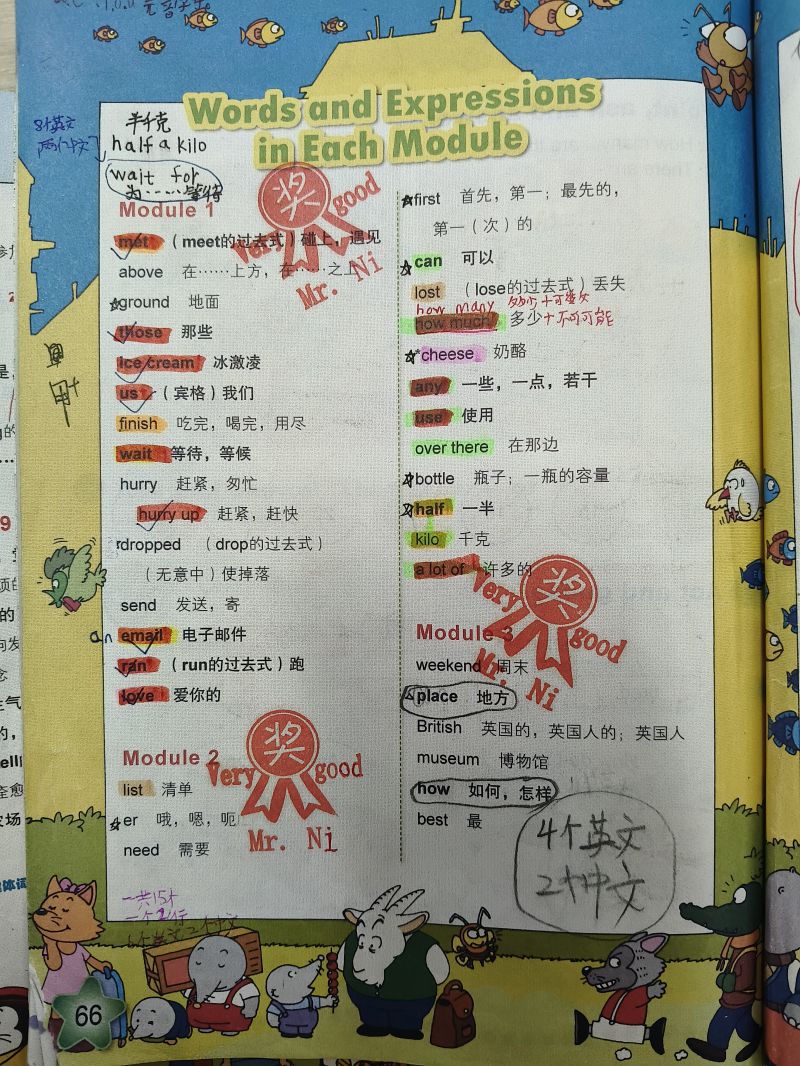 Words and Expressions
in Each Module
8个英文
两个中文
半千克
half a kilo
wait for
为……等待
Module 1
met （meet的过去式）碰上，遇见
above 在……上方，在……之上
ground 地面
those 那些
ice cream 冰激凌
us （宾格）我们
finish 吃完，喝完，用尽
wait 等待，等候
hurry 赶紧，匆忙
hurry up 赶紧，赶快
dropped （drop的过去式）
（无意中）使掉落
send 发送，寄
an email 电子邮件
ran （run的过去式）跑
love 爱你的
Module 2
list 清单
er 哦，嗯，呃
need 需要
first 首先，第一；最先的，
第一（次）的
can 可以
lost （lose的过去式）丢失
how many 多少+可数
how much 多少+不可
cheese 奶酪
any 一些，一点，若干
use 使用
over there 在那边
bottle 瓶子；一瓶的容量
half 一半
kilo 千克
a lot of 许多的
Module 3
weekend 周末
place 地方
British 英国的，英国人的；英国人
museum 博物馆
how 如何，怎样
best 最
4个英文
2个中文
奖
Very good
Mr. Ni
奖
Very good
Mr. Ni
奖
Very good
Mr. Ni
一共15个
66